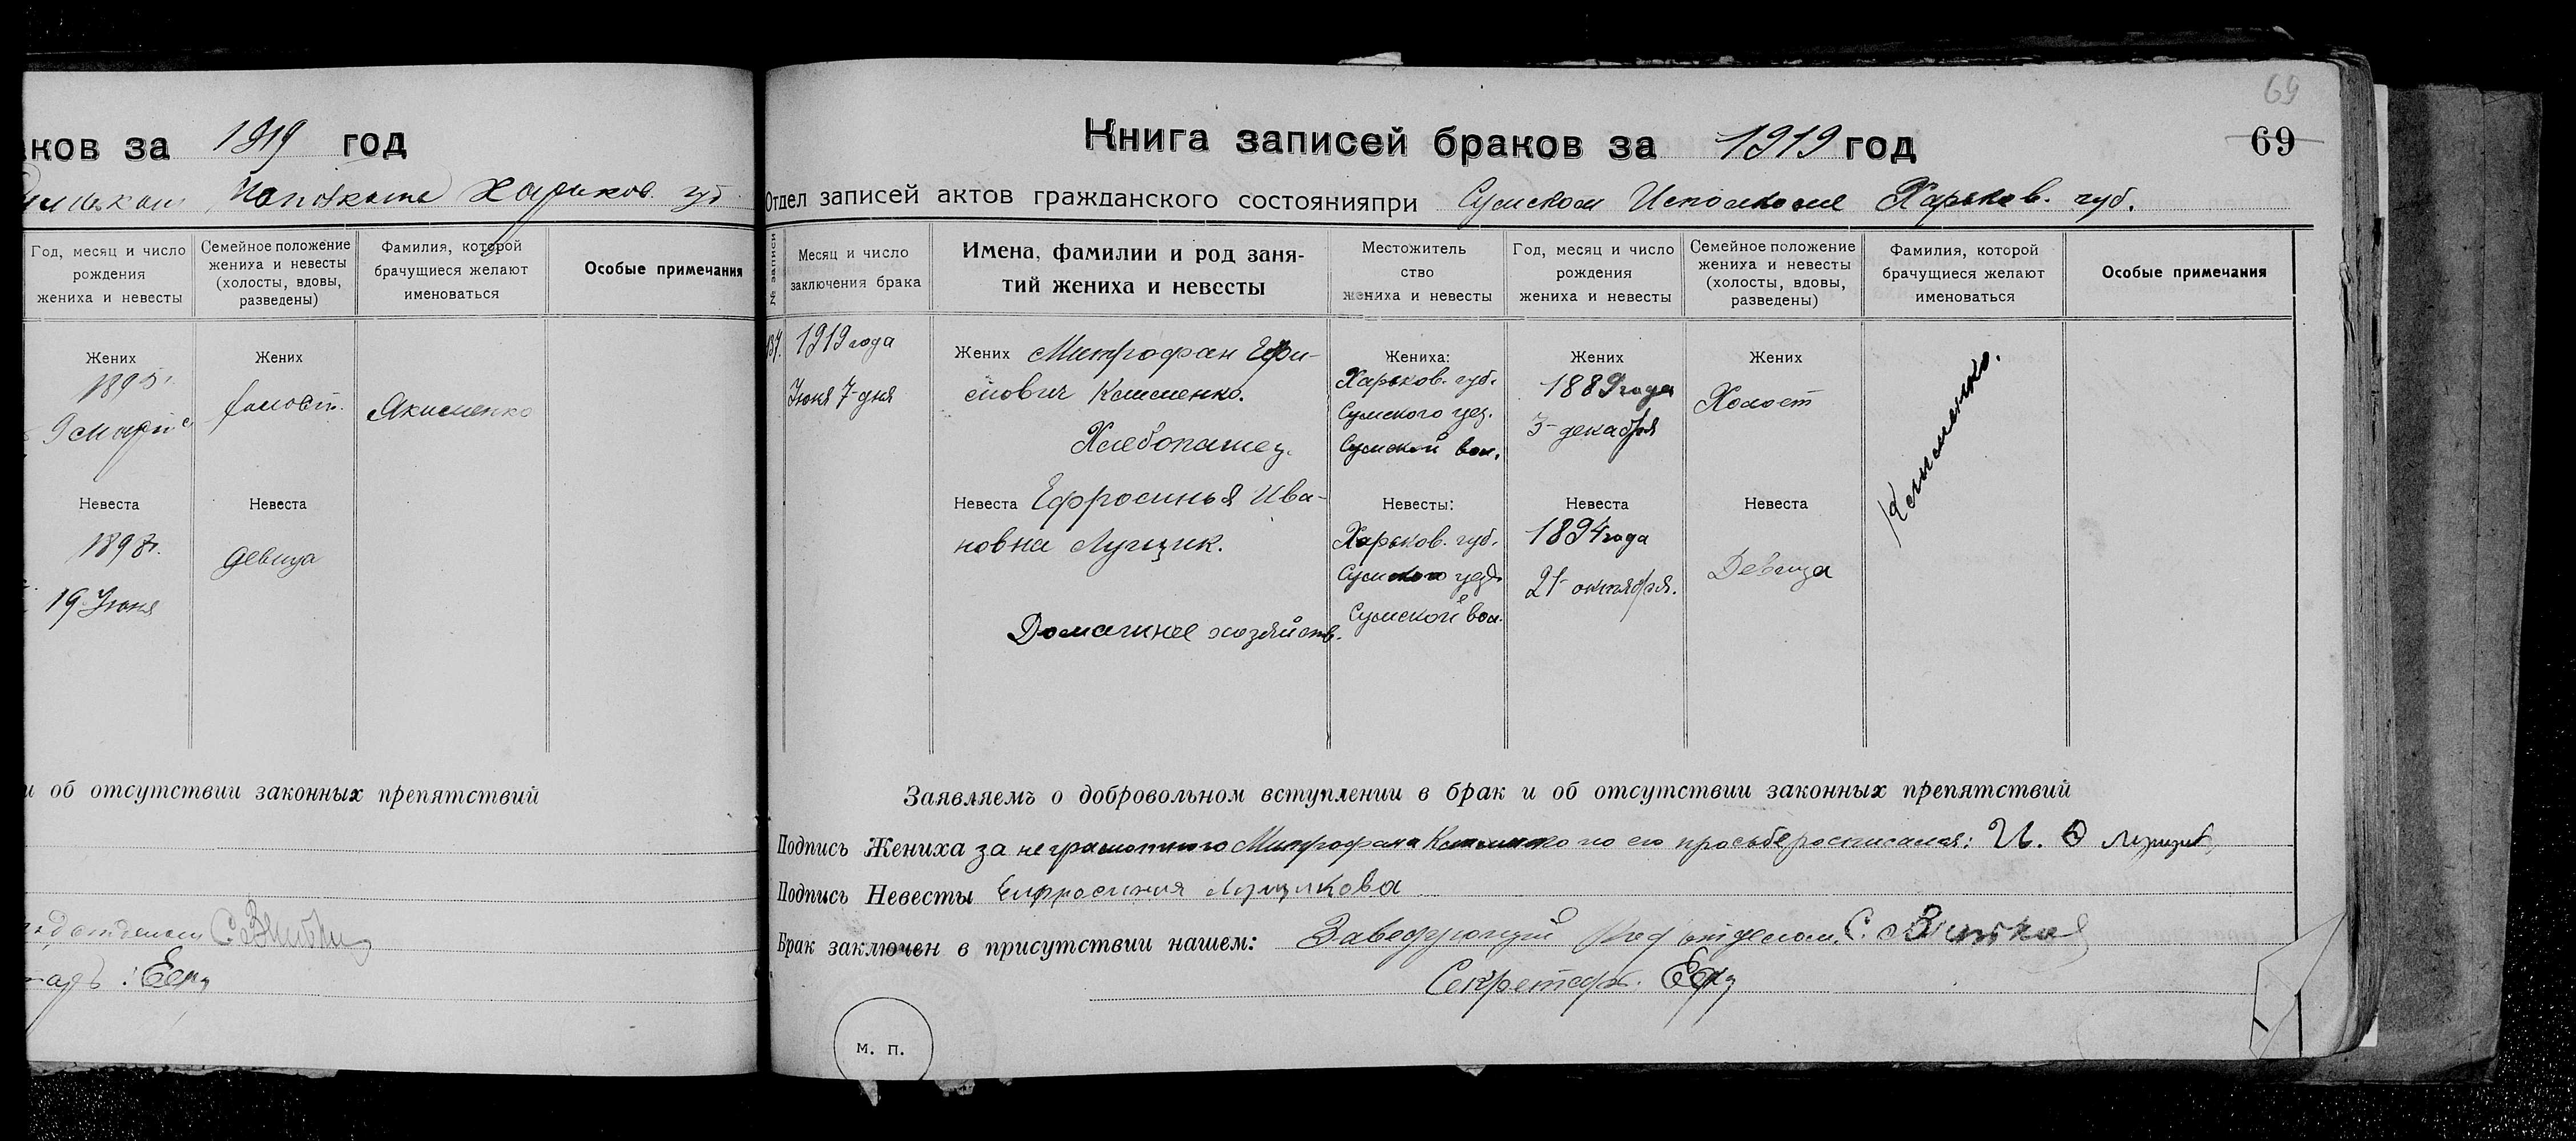 ков за 1919 год
Харьков. губ
Год, месяц и число рождения жениха и невесты
Семейное положение жениха и невесты (холосты, вдовы, разведены)
Фамилия, которой брачущиеся желают именоваться
Особые примечания
Жених
1895г.
9 марта
Жених
холост.
Якименко
Невеста
1898г.
19 Июня
Невеста
девица
и об отсутствии законных препятствий
69
69
Книга записей браков за 1919 год
Отдел записей актов гражданского состоянияпри Сумском Исполкоме Харьков. губ.
№ записи
Месяц и число
заключения брака
Имена, фамилии и род заня-
тий жениха и невесты
Местожитель
ство
жениха и невесты
Год, месяц и число
рождения
жениха и невесты
Семейное положение
жениха и невесты
(холосты, вдовы,
разведены)
Фамилия, которой
брачущиеся желают
именоваться
Особые примечания
1919 года
Июня 7 дня
Жених Митрофан Ефи-
мович Клименко.
Хлебопашец.
Жениха:
Харьков. губ.
Сумского уез.
Сумской вол.
Жених
1889 года
3 декабря
Жених
Холост
Клименко.
Невеста Ефросинья Ива-
новна Лущик.
Домашнее хозяйств.
Невесты:
Харьков. губ.
Сумского уезд.
Сумской вол.
Невеста
1894 года
21 октября.
Невеста
Девица
Заявляемъ о добровольном вступлении в брак и об отсутствии законных препятствий
Подпись Жениха за неграмотного Митрофана Клименко по его просьбе росписался: И.
Подпись Невесты Ефросиния Лущикова
Брак заключен в присутствии нашем: Заведующий отделом. С.
Секретарь.
м. п.